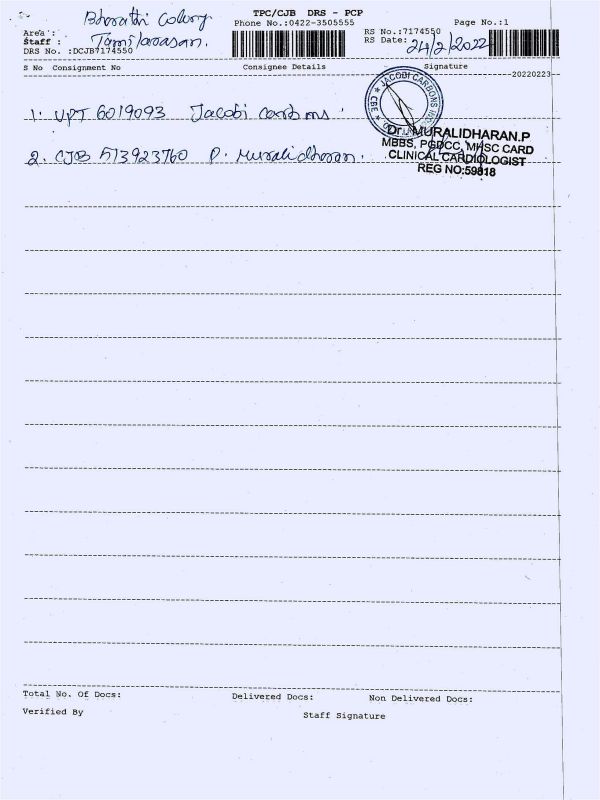 TPC/CJB DRS - PCP
Area : Bharathi Colony
Phone No.:0422-3505555
Page No.:1
Staff : Tamilarasan.
RS No.:7174550
RS Date: 24/2/2022
DRS No. :DCJB7174550
S No Consignment No Consignee Details Signature
20220223
1. UPT 6019093 Jacobi carbons
JACOBI CARBONS
CBE
Dr. MURALIDHARAN.P
MBBS, PGDCC, MHSC CARD
CLINICAL CARDIOLOGIST
REG NO:59818
2. CJB 513923760 P. Muralidharan.
Total No. Of Docs: Delivered Docs: Non Delivered Docs:
Verified By Staff Signature